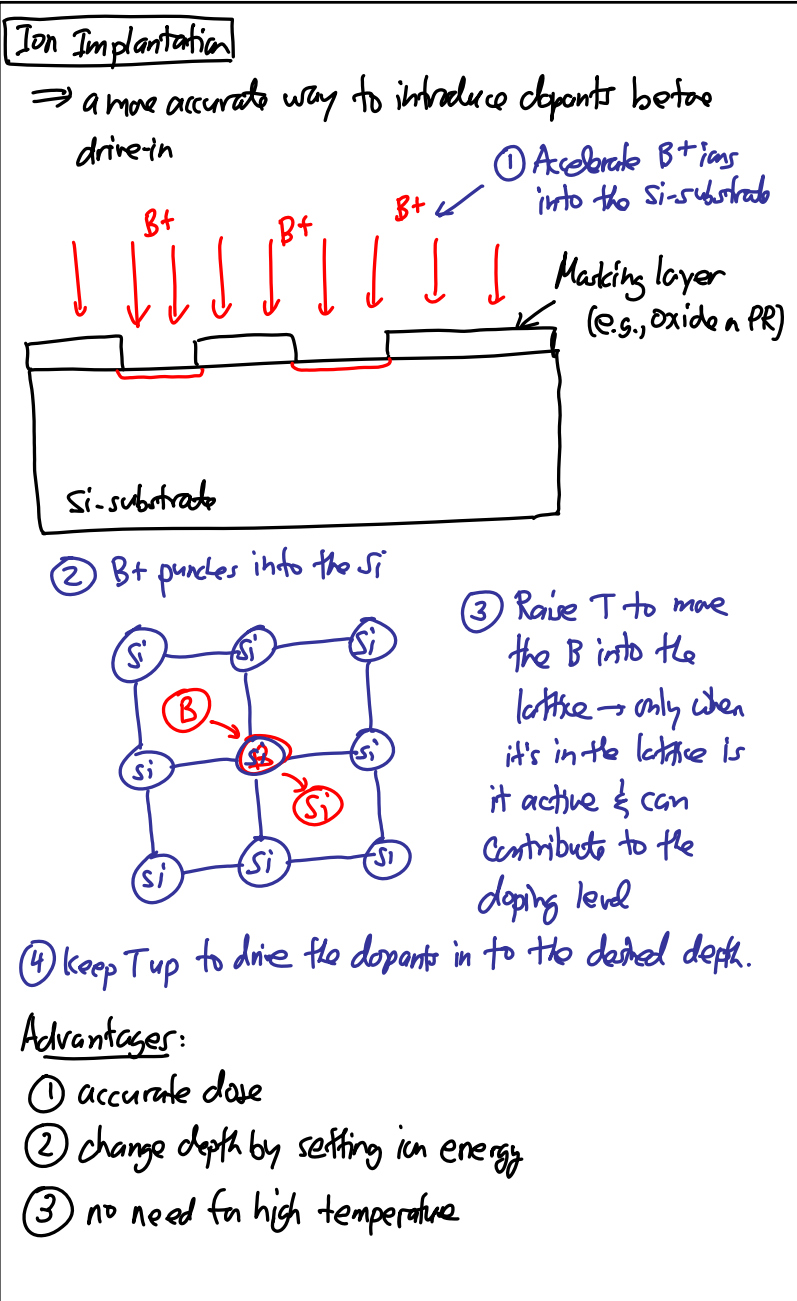 Ion Implantation
⇒ a more accurate way to introduce dopants before
drive-in
① Accelerate B+ ions
into the Si-substrate
B+
B+
B+
Masking layer
(e.g., oxide or PR)
Si-substrate
② B+ punches into the Si
③ Raise T to move
the B into the
lattice → only when
it's in the lattice is
it active & can
contribute to the
doping level
Si Si Si
B
Si Si
Si
Si Si Si
④ keep T up to drive the dopants in to the desired depth.
Advantages:
① accurate dose
② change depth by setting ion energy
③ no need for high temperature